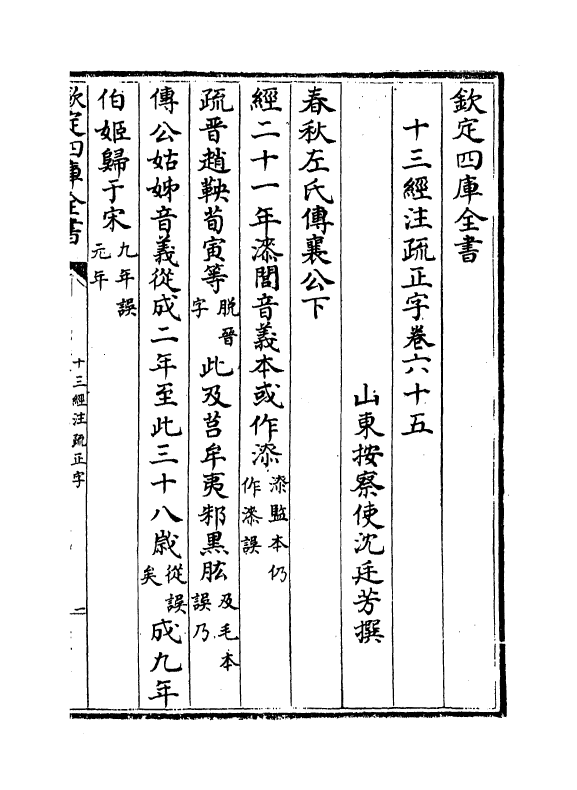 欽定四庫全書
十三經注疏正字卷六十五
山東按察使沈廷芳撰
春秋左氏傳襄公下
經二十一年漆閭音義本或作㓒漆監本仍作漆誤
疏晉趙鞅荀寅等脱晉字此及莒牟夷邾黒肱及毛本誤乃
傳公姑姊音義從成二年至此三十八歲從誤矣成九年
伯姬歸于宋九年誤元年
欽定四庫全書
十三經注疏正字
一